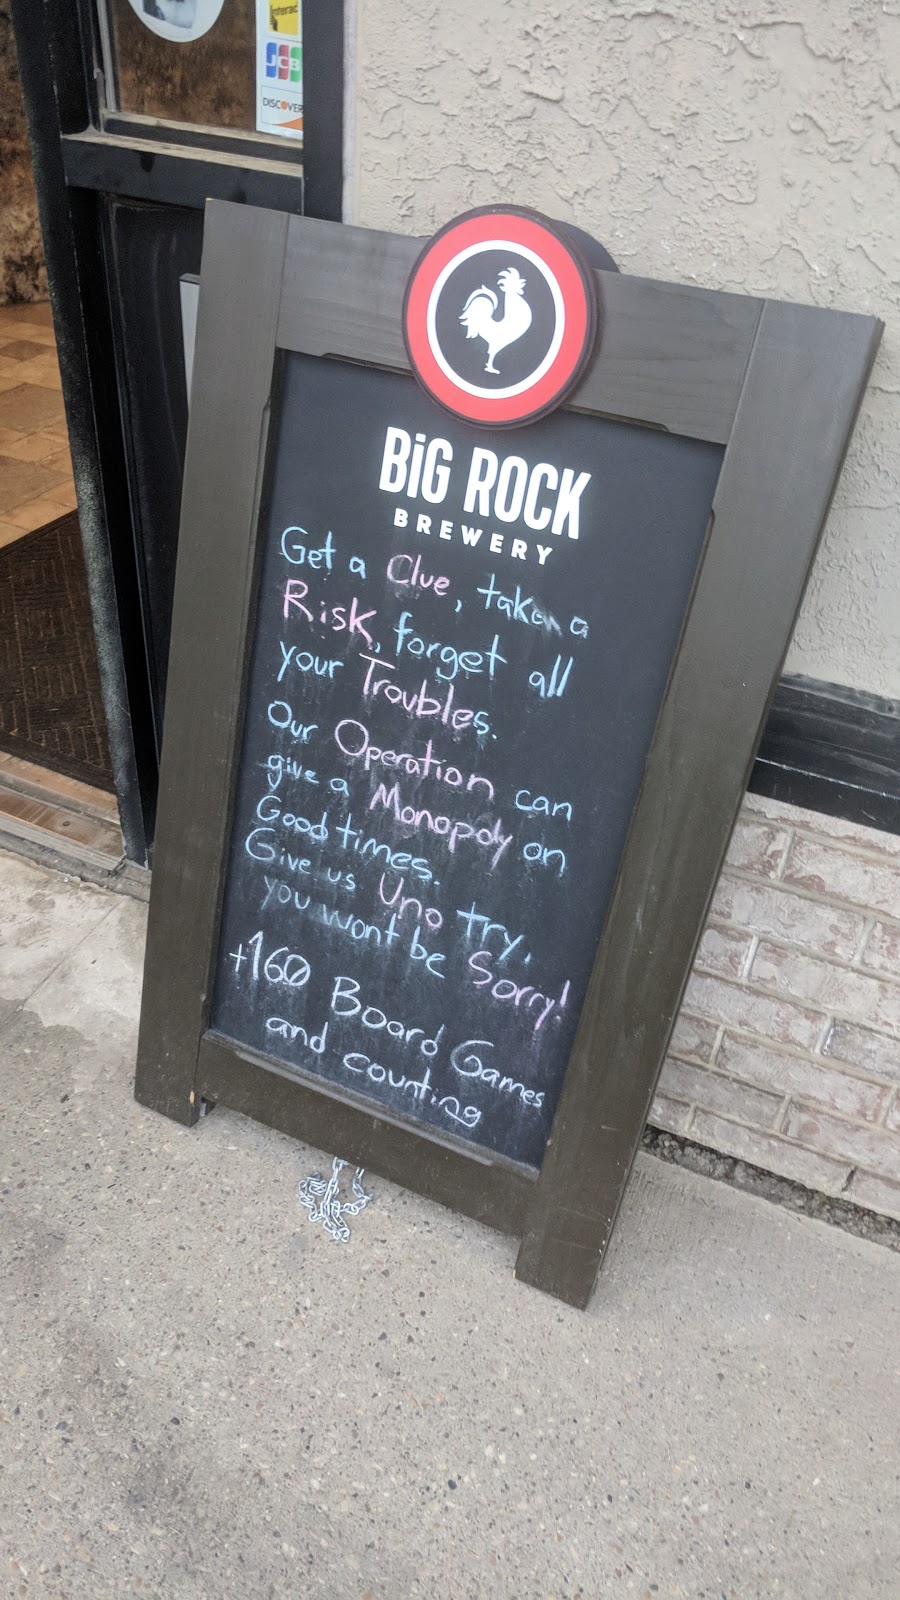 interac
JCB
DISCOVER
BiG ROCK
BREWERY
Get a Clue, take a
Risk, forget all
your Troubles.
Our Operation can
give a Monopoly on
Good times.
Give us Uno try,
you wont be Sorry!
+160 Board Games
and counting